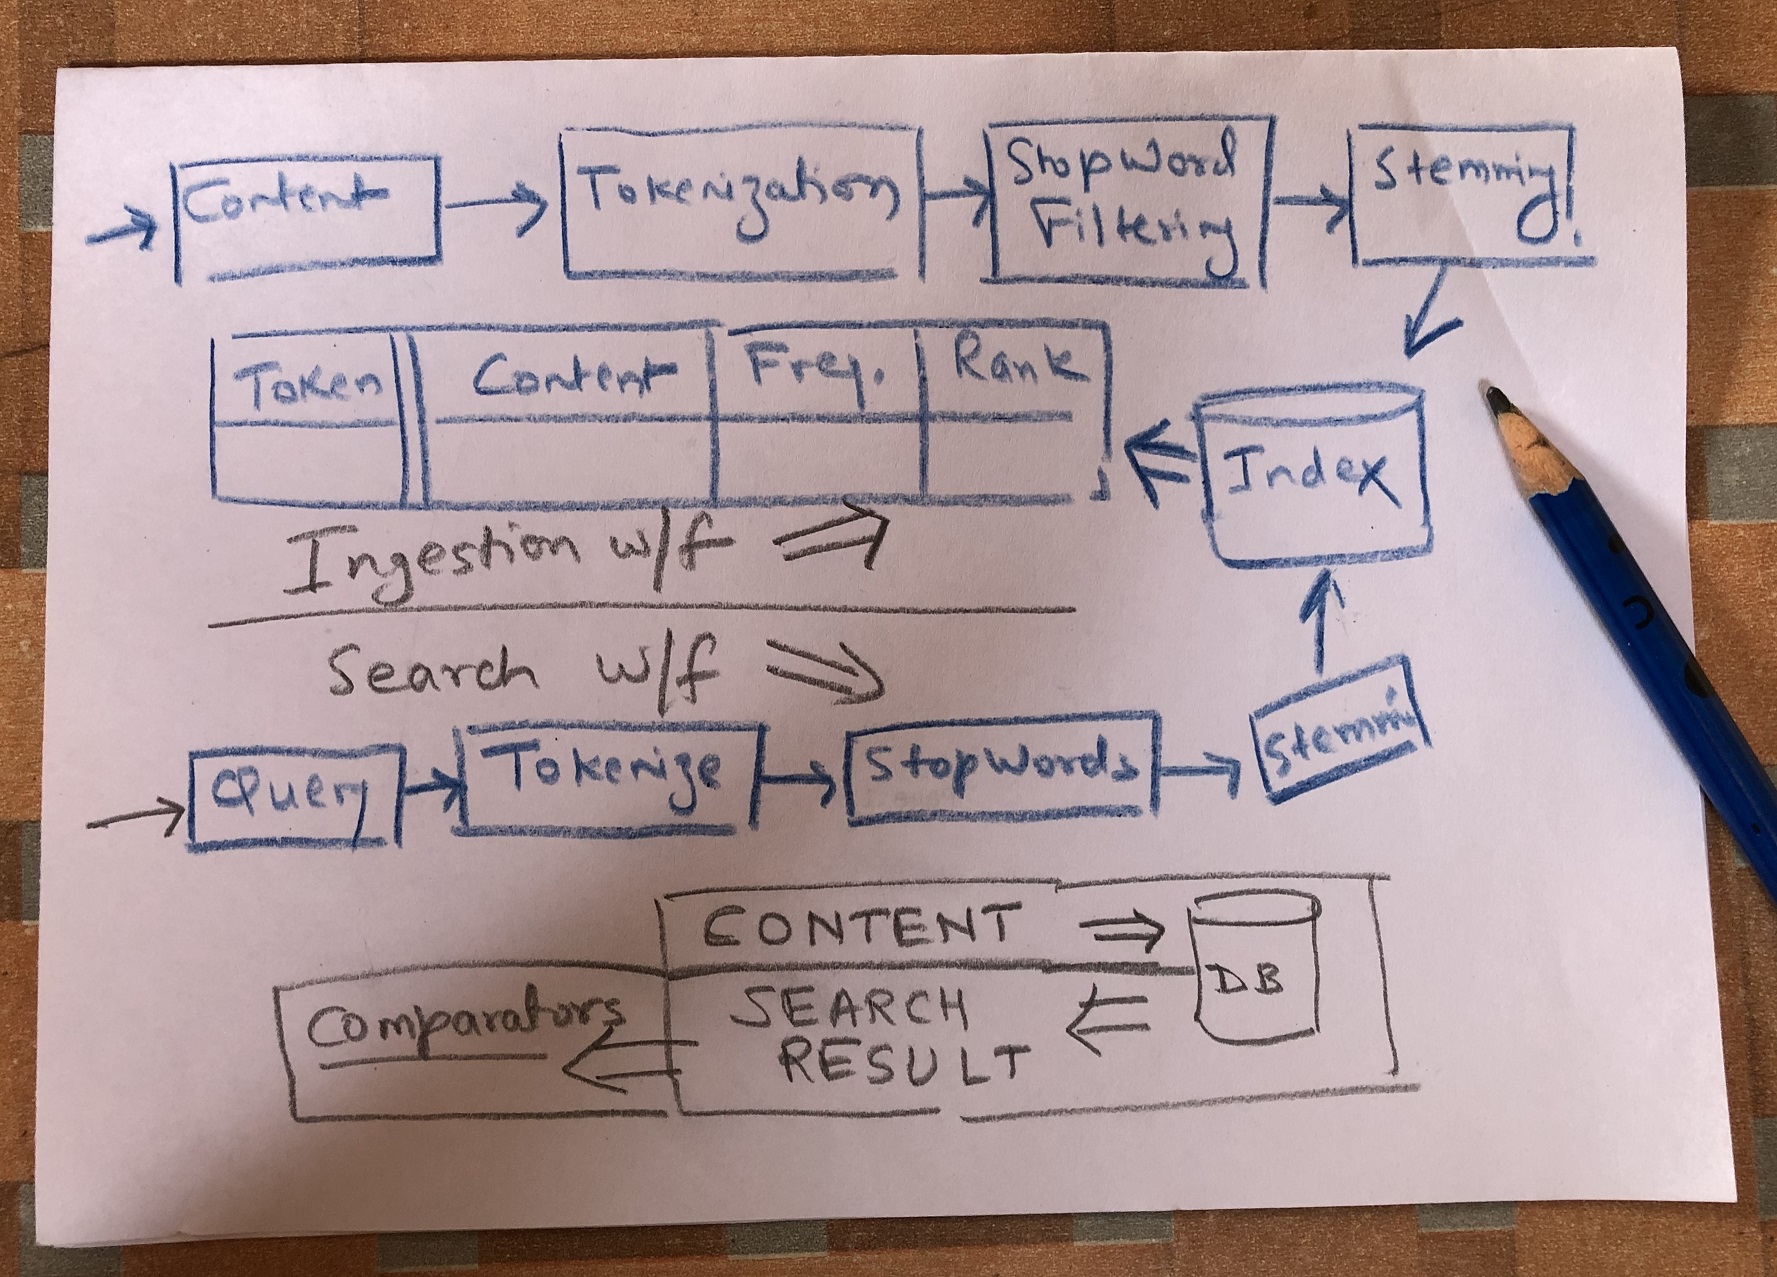 Content
Tokenization
StopWord
Filtering
Stemming
Token Content Freq. Rank
Index
Ingestion w/f
Search w/f
Query
Tokenize
StopWords
Stemmi
CONTENT
DB
Comparators
SEARCH
RESULT